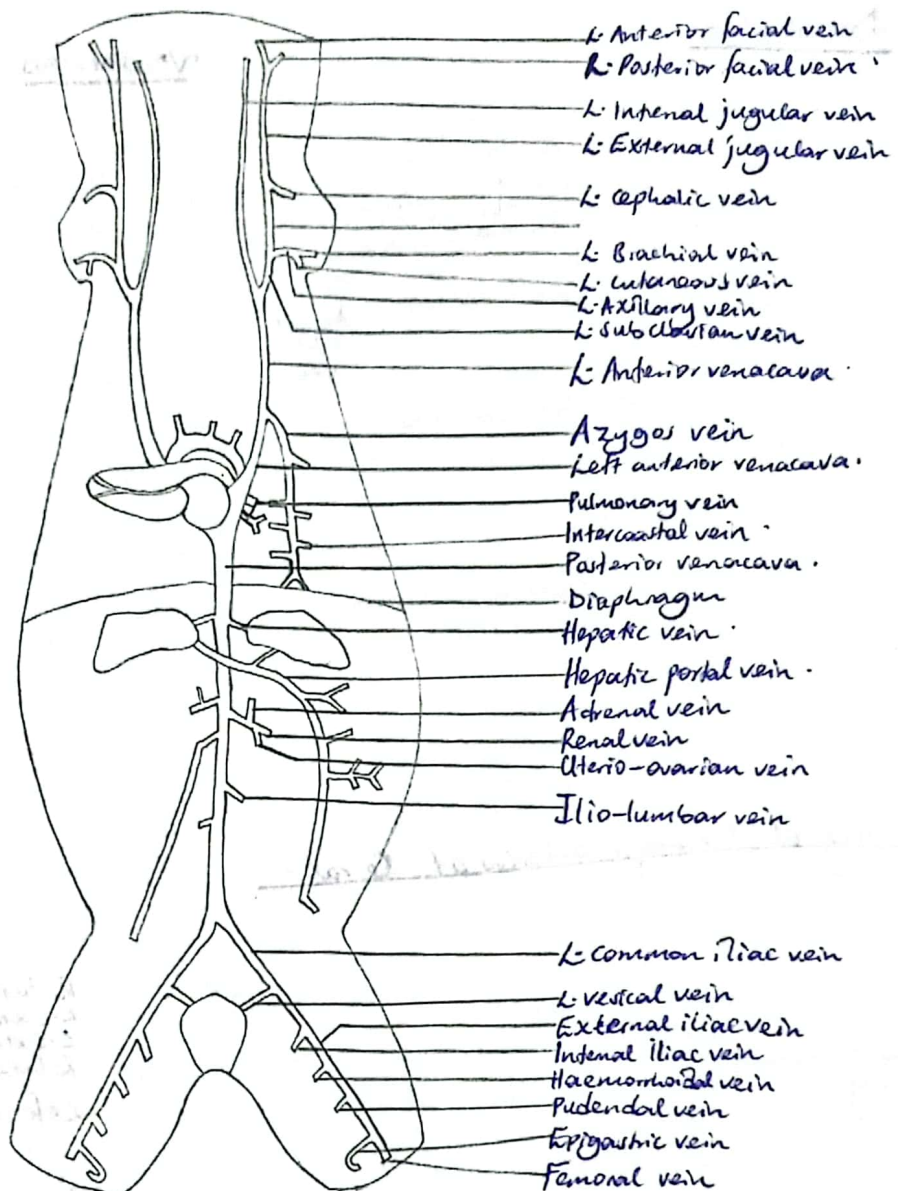 L· Anterior facial vein
R· Posterior facial vein
L· Internal jugular vein
L· External jugular vein
L· Cephalic vein
L· Brachial vein
L· cutaneous vein
L· Axillary vein
L· subclavian vein
L· Anterior venacava
Azygos vein
Left anterior venacava.
Pulmonary vein
Intercoastal vein
Posterior venacava.
Diaphragm
Hepatic vein
Hepatic portal vein
Adrenal vein
Renal vein
Uterio-ovarian vein
Ilio-lumbar vein
L· common iliac vein
L· vesical vein
External iliac vein
Internal iliac vein
Haemorrhoidal vein
Pudendal vein
Epigastric vein
Femoral vein